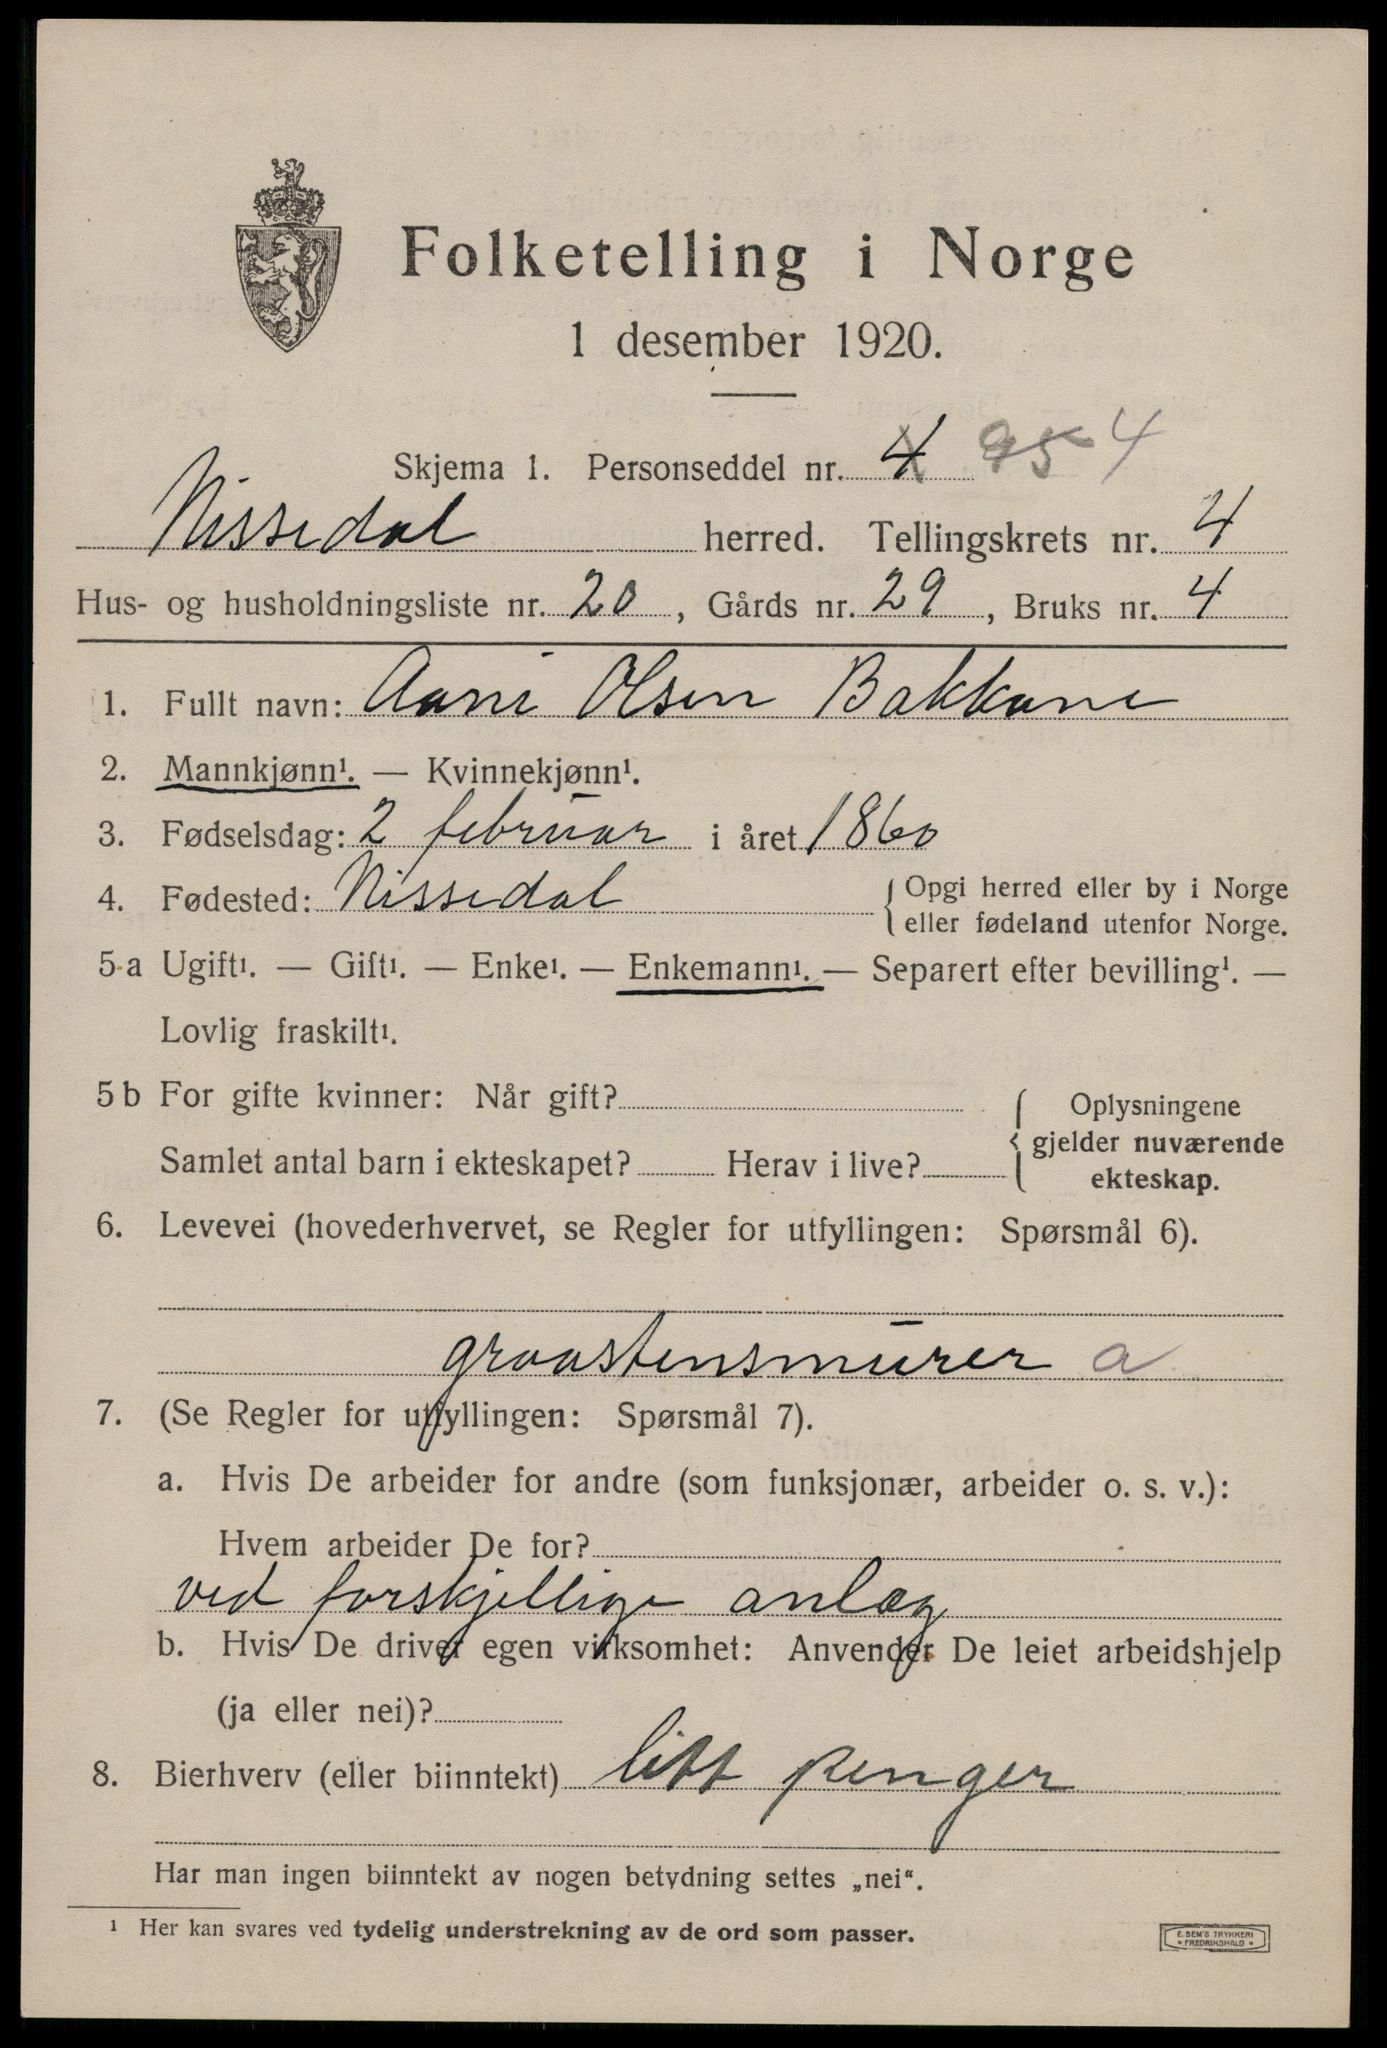 Folketelling i Norge
1 desember 1920.
Skjema 1. Personseddel nr. 4 95 4
Nissedal herred. Tellingskrets nr. 4
Hus- og husholdningsliste nr. 20, Gårds nr. 29, Bruks nr. 4
1. Fullt navn: Aani Olsen Bakkane
2. Mannkjønn¹. — Kvinnekjønn¹.
3. Fødselsdag: 2 februar i året 1860
4. Fødested: Nissedal { Opgi herred eller by i Norge
eller fødeland utenfor Norge.
5 a Ugift¹. — Gift¹. — Enke¹. — Enkemann¹. — Separert efter bevilling¹. —
Lovlig fraskilt¹.
5 b For gifte kvinner: Når gift? { Oplysningene
gjelder nuværende
Samlet antal barn i ekteskapet? Herav i live?
ekteskap.
6. Levevei (hovederhvervet, se Regler for utfyllingen: Spørsmål 6).
graastensmurer a
7. (Se Regler for utfyllingen: Spørsmål 7).
a. Hvis De arbeider for andre (som funksjonær, arbeider o. s. v.):
Hvem arbeider De for?
ved forskjellige anlæg
b. Hvis De driver egen virksomhet: Anvender De leiet arbeidshjelp
(ja eller nei)?
8. Bierhverv (eller biinntekt) litt penger
Har man ingen biinntekt av nogen betydning settes „nei“.
¹ Her kan svares ved tydelig understrekning av de ord som passer.
E. SEM'S TRYKKERI
• FREDRIKSHALD •